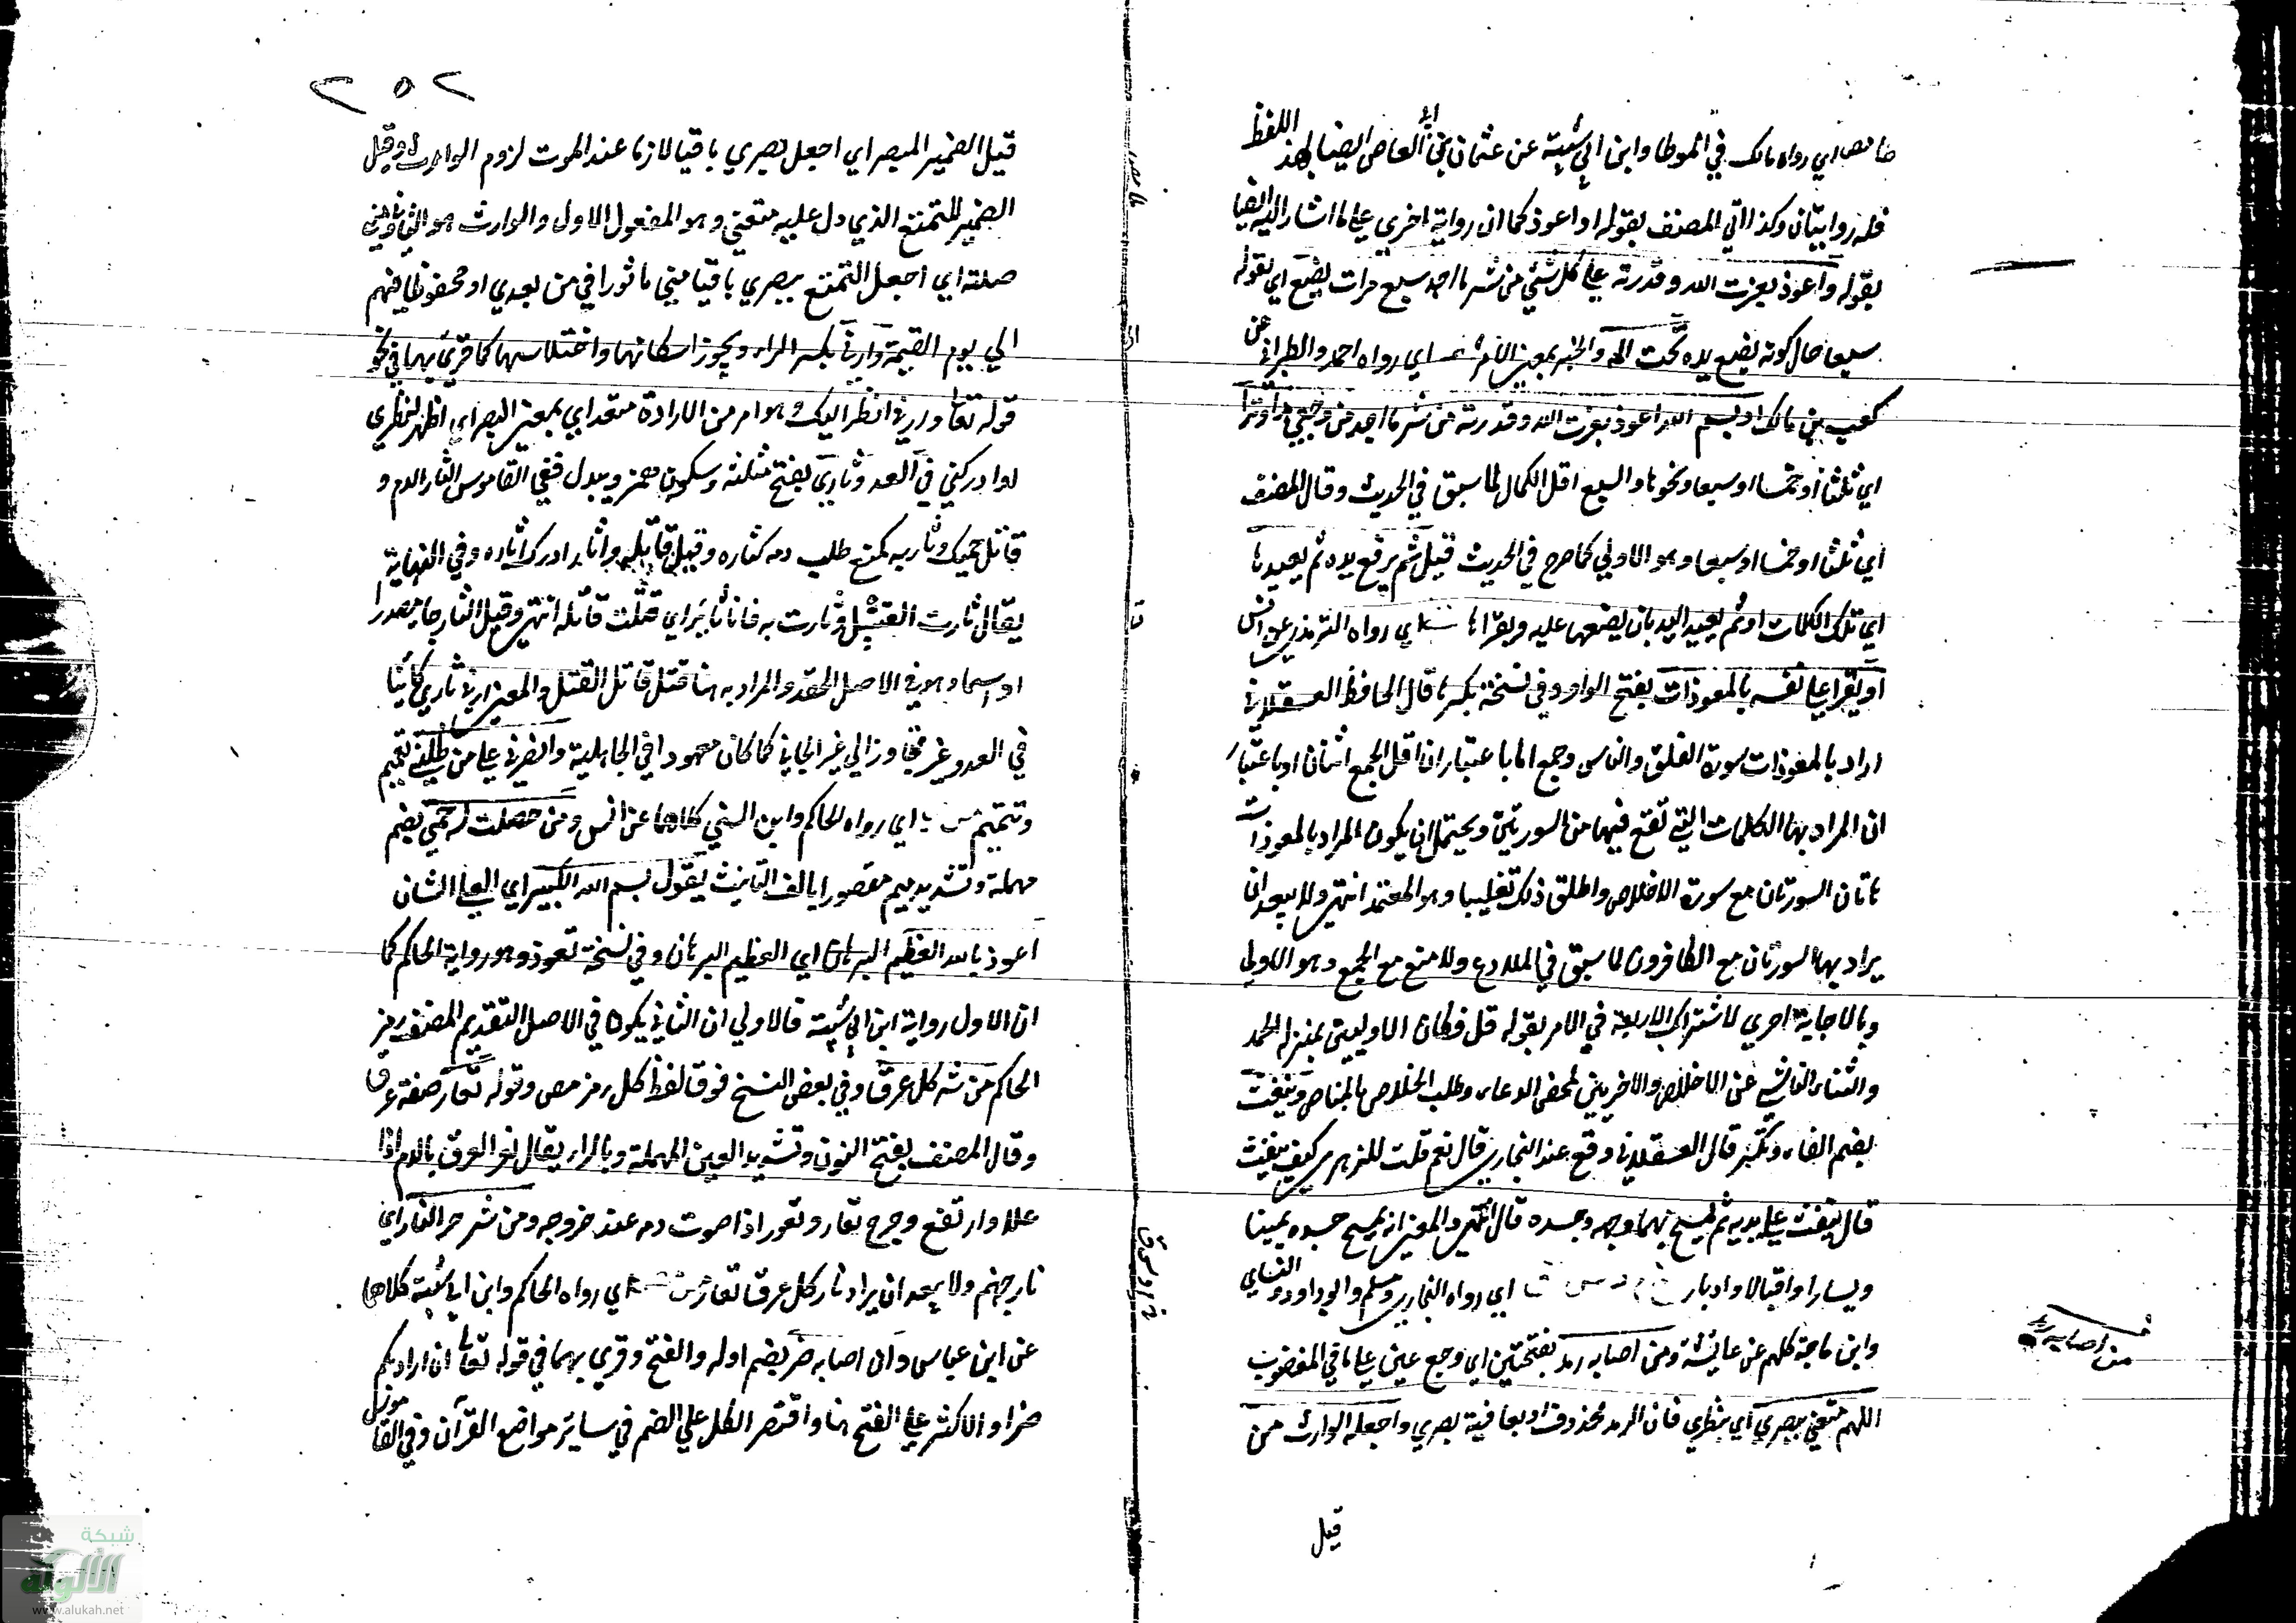 طا مص اي رواه مالك في الموطا وابن ابي شيبة عن عثمان بن ابي العاص ايضا لهذا اللفظ
فله روايتان وكذا اتي المصنف بقوله او اعوذ كما ان رواية اخري علي ما اشار اليه ايضا
بقوله واعوذ بعزت الله وقدرته علي كل شئ من شر ما اجد سبع مرات يضع اي يقوله
سبعا حال كونه يضع يده تحت المه والخبر بمعني الامر اي رواه احمد والطبراني عن
كعب بن مالك او بسم الله اعوذ بعزت الله وقدرته من شر ما اجد من وجعي هذا وترا
اي ثلثا او خمسا او سبعا ونحوها والسبع اقل الكمال لما سبق في الحديث وقال المصنف
اي ثلثا او خمسا او سبعا وهو الاولي كما صرح في الحديث قبل ثم يرفع يده ثم يعيدها
اي تلك الكلمات او ثم يعيد اليد بان يضعها عليه ويقرأها اي رواه الترمذي عن انس
او يقرا علي نفسه بالمعوذات بفتح الواو وفي نسخة بكسرها قال الحافظ العسقلاني
اراد بالمعوذات سورة الفلق والناس وجمع اما باعتبار ان اقل الجمع اثنان او باعتبار
ان المراد بها الكلمات التي تقع فيهما من السورتين ويحتمل ان يكون المراد بالمعوذات
هاتان السورتان مع سورة الاخلاص واطلق ذلك تغليبا وهو المعتمد انتهي ولا يبعد ان
يراد بهما السورتان مع الكافرون لما سبق في الملدوغ ولا منع مع الجمع وهو الاولي
وبالاجابة احري لاشتراك الاربعة في الامر بقوله قل فكان الاوليين بمنزلة الحمد
والثناء الناشئ عن الاخلاص والاخريين لمحض الدعاء وطلب الخلاص بالمناص وينفث
بضم الفاء وتكسر قال العسقلاني وقع عند البخاري قال نعم قلت للزهري كيف ينفث
قال ينفث علي يديه ثم يمسح بهما وجهه وجسده قال انتهي والمعني انه يمسح جسده يمينا
ويسارا واقبالا وادبار خ م د س ق اي رواه البخاري ومسلم وابو داود والنسائي
وابن ماجة كلهم عن عايشة ومن اصابه رمد بفتحتين اي وجع عين علي ما في المغرب
اللهم متعني ببصري اي بنظري فان الرمد محذوف او بعافية بصري واجعله الوارث مني
قيل
من اصابه رمد
٢٥٢
قيل الضمير للبصر اي اجعل بصري باقيا لازما عند الموت لزوم الوارث وقيل
الضمير للتمتع الذي دل عليه متعني وهو المفعول الاول والوارث هو الثاني ومني
صلته اي اجعل التمتع ببصري باقيا مني ماثورا في من بعدي او محفوظا فيهم
الي يوم القيمة وارني بكسر الراء ويجوز اسكانها واختلاسها كما قرئ بهما في نحو
قوله تعالي ارني انظر اليك وهو امر من الاراءة متعد اي بمعني البصر اي اظهر لنظري
او ادركني في العدو ثاري بفتح مثلثة وسكون همز ويبدل ففي القاموس الثار الدم و
قاتل حميمك وثار به كمنع طلب دمه كثاره وقيل قاتله واثار ادرك ثاره وفي النهاية
يقال ثارت القتيل وثارت به فانا ثاير اي قتلت قاتله انتهي وقيل الثار جا مصدرا
او اسما وهو في الاصل الحقد والمراد به هنا قتل قاتل القتيل والمعني ارني ثاري كائنا
في العدو غير متجاوز الي غير الجاني كما كان معهودا في الجاهلية وانصرني علي من ظلمني تعميم
وتتميم مس ي اي رواه الحاكم وابن السني كلاهما عن انس ومن حصلت له حمي بضم
مهملة وتشديد ميم مقصورا بالف التانيث يقول بسم الله الكبير اي العلي الشان
اعوذ بالله العظيم البرهان اي العظيم البرهان وفي نسخة تعوذ وهو رواية الحاكم كما
ان الاول رواية ابن ابي شيبة فالاولي ان الثاني يكون في الاصل لتقديم المصنف رمز
الحاكم من شر كل عرق وفي بعض النسخ فوق لفظ كل رمز مص وقوله نعار صفة عرق
وقال المصنف بفتح النون وتشديد العين المهملة وبالراء يقال نعر العرق بالدم اذا
علا وارتفع وجرح نعار ونعور اذا صوت دمه عند خروجه ومن شر حر النار اي
نار جهنم ولا يبعد ان يراد نار كل عرق نعار مس مص اي رواه الحاكم وابن ابي شيبة كلاهما
عن ابن عباس وان اصابه ضر بضم اوله والفتح وقري بهما في قوله تعالي ان اراد بكم
ضرا والاكثر علي الفتح هنا واقتصر الكل علي الضم في سائر مواضع القرآن وفي القاموس
شبكة
الألوكة
www.alukah.net